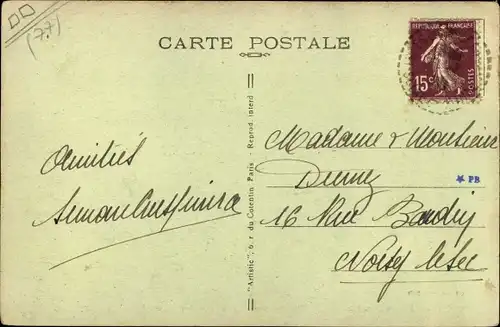 (77)
CARTE POSTALE
RÉPUBLIQUE FRANÇAISE
15c
POSTES
Amitiés
Madame & Monsieur
PB
16 Rue Baudin
Noisy le Sec
"Artistic", 6, r. du Cotentin Paris - Reprod. interd.